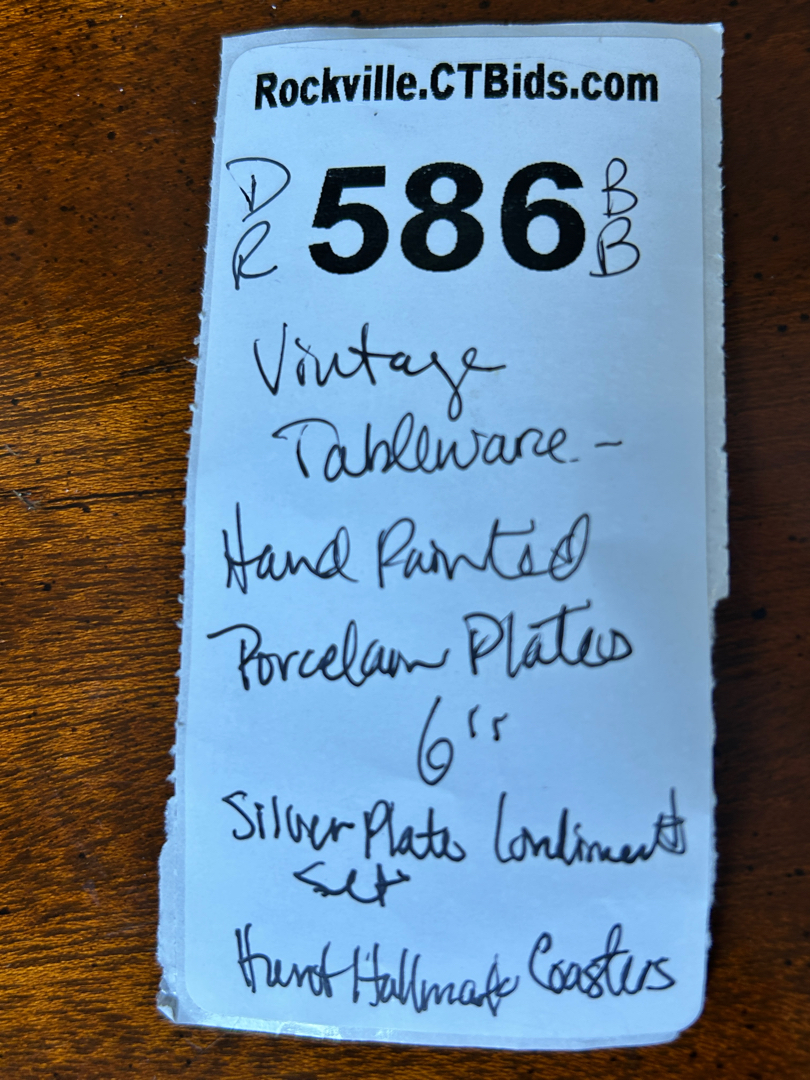 Rockville.CTBids.com
D 586 B
R B
Vintage
Tableware -
Hand Painted
Porcelain Plates
6"
Silver Plate Condiment
Set
Hunt Hallmark Coasters